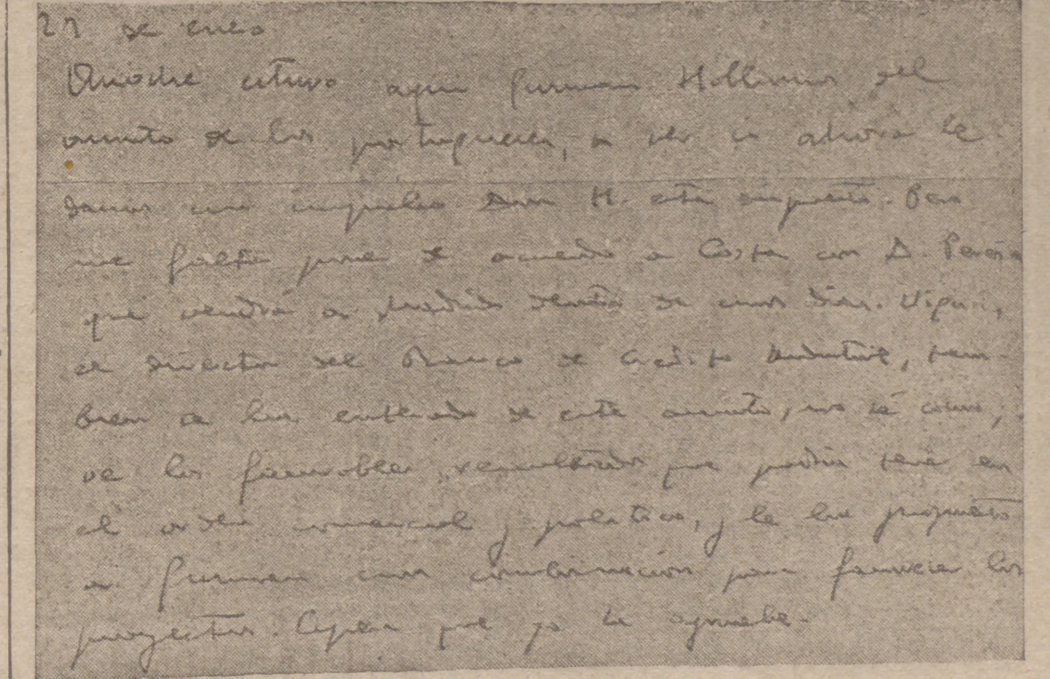 27 de enero
Anoche estuvo aquí Guzmán. Hablamos del
asunto de los portugueses, a ver si ahora le
damos un empujón. Don H. está dispuesto. Pero
me falta poner de acuerdo a Costa con D. Pereira
que vendrá a Madrid dentro de unos días. Viguri,
el director del Banco de Crédito Industrial, tam-
bién se ha enterado de este asunto, no sé cómo,
ve los favorables resultados que podría tener en
el orden comercial y político, y le ha propuesto
a Guzmán una combinación para favorecer los
proyectos. Espera que yo la apruebe.